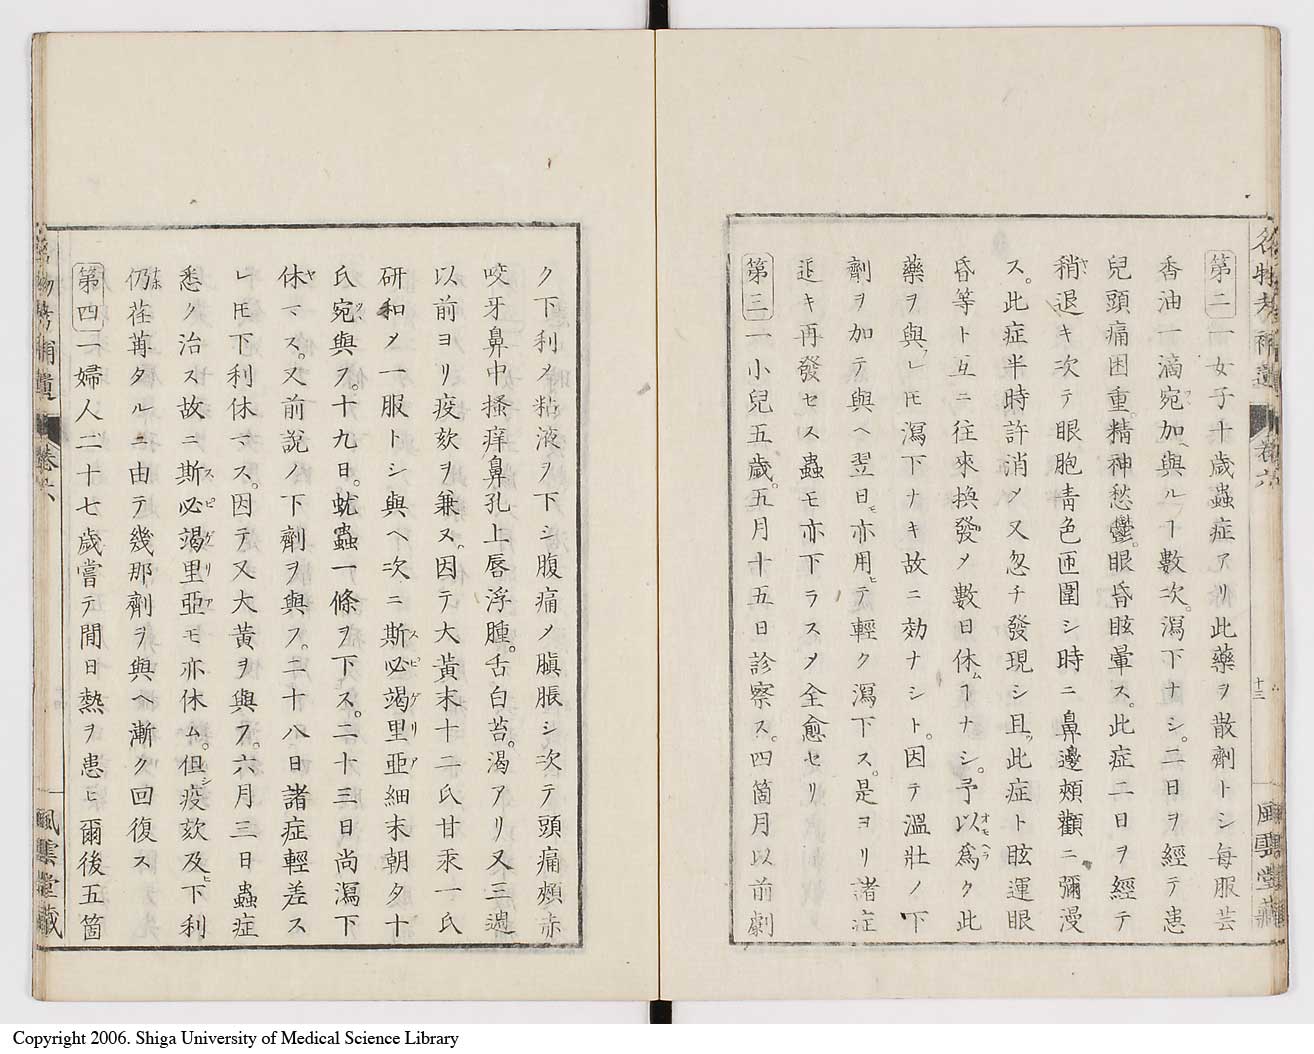 第二一女子十歳蟲症アリ此藥ヲ散劑トシ毎服芸
香油一滴宛加ヘ與ルヿ數次。瀉下ナシ。二日ヲ經テ患
兒頭痛困重。精神愁鬱。眼昏眩暈ス。此症二日ヲ經テ
稍退キ次テ眼胞靑色匝圍シ時ニ鼻邊頰顴ニ彌漫
ス。此症半時許消〆又忽チ發現シ且ツ此症ト眩運眼
昏等ト互ニ往來換發〆數日休ムヿナシ。予以爲ク此
藥ヲ與フレ𪜈瀉下ナキ故ニ効ナシト。因テ溫壯ノ下
劑ヲ加テ與ヘ翌日モ亦用ヒテ輕ク瀉下ス。是ヨリ諸症
退キ再發セス蟲モ亦下ラス〆全愈セリ
第三一小兒五歳。五月十五日診察ス。四箇月以前劇
ク下利〆粘液ヲ下シ腹痛〆䐜脹シ次テ頭痛頰赤
咬牙鼻中搔痒鼻孔上唇浮腫。舌白苔。渴アリ又三週
以前ヨリ疫欬ヲ兼ヌ。因テ大黃末十二氏甘汞一氏
研和〆一服トシ與ヘ次ニ斯必竭里亞細末朝夕十
氏宛與フ。十九日。蚘蟲一條ヲ下ス。二十三日尚瀉下
休マス。又前說ノ下劑ヲ與フ。二十八日諸症輕差ス
レ𪜈下利休マス。因テ又大黃ヲ與フ。六月三日蟲症
悉ク治ス故ニ斯必竭里亞モ亦休ム。但シ疫欬及ヒ下利
仍荏苒タルニ由テ幾那劑ヲ與ヘ漸ク回復ス
第四一婦人二十七歳嘗テ間日熱ヲ患ヒ爾後五箇
名物考補遺 卷六 十三 風雲堂藏
Copyright 2006. Shiga University of Medical Science Library